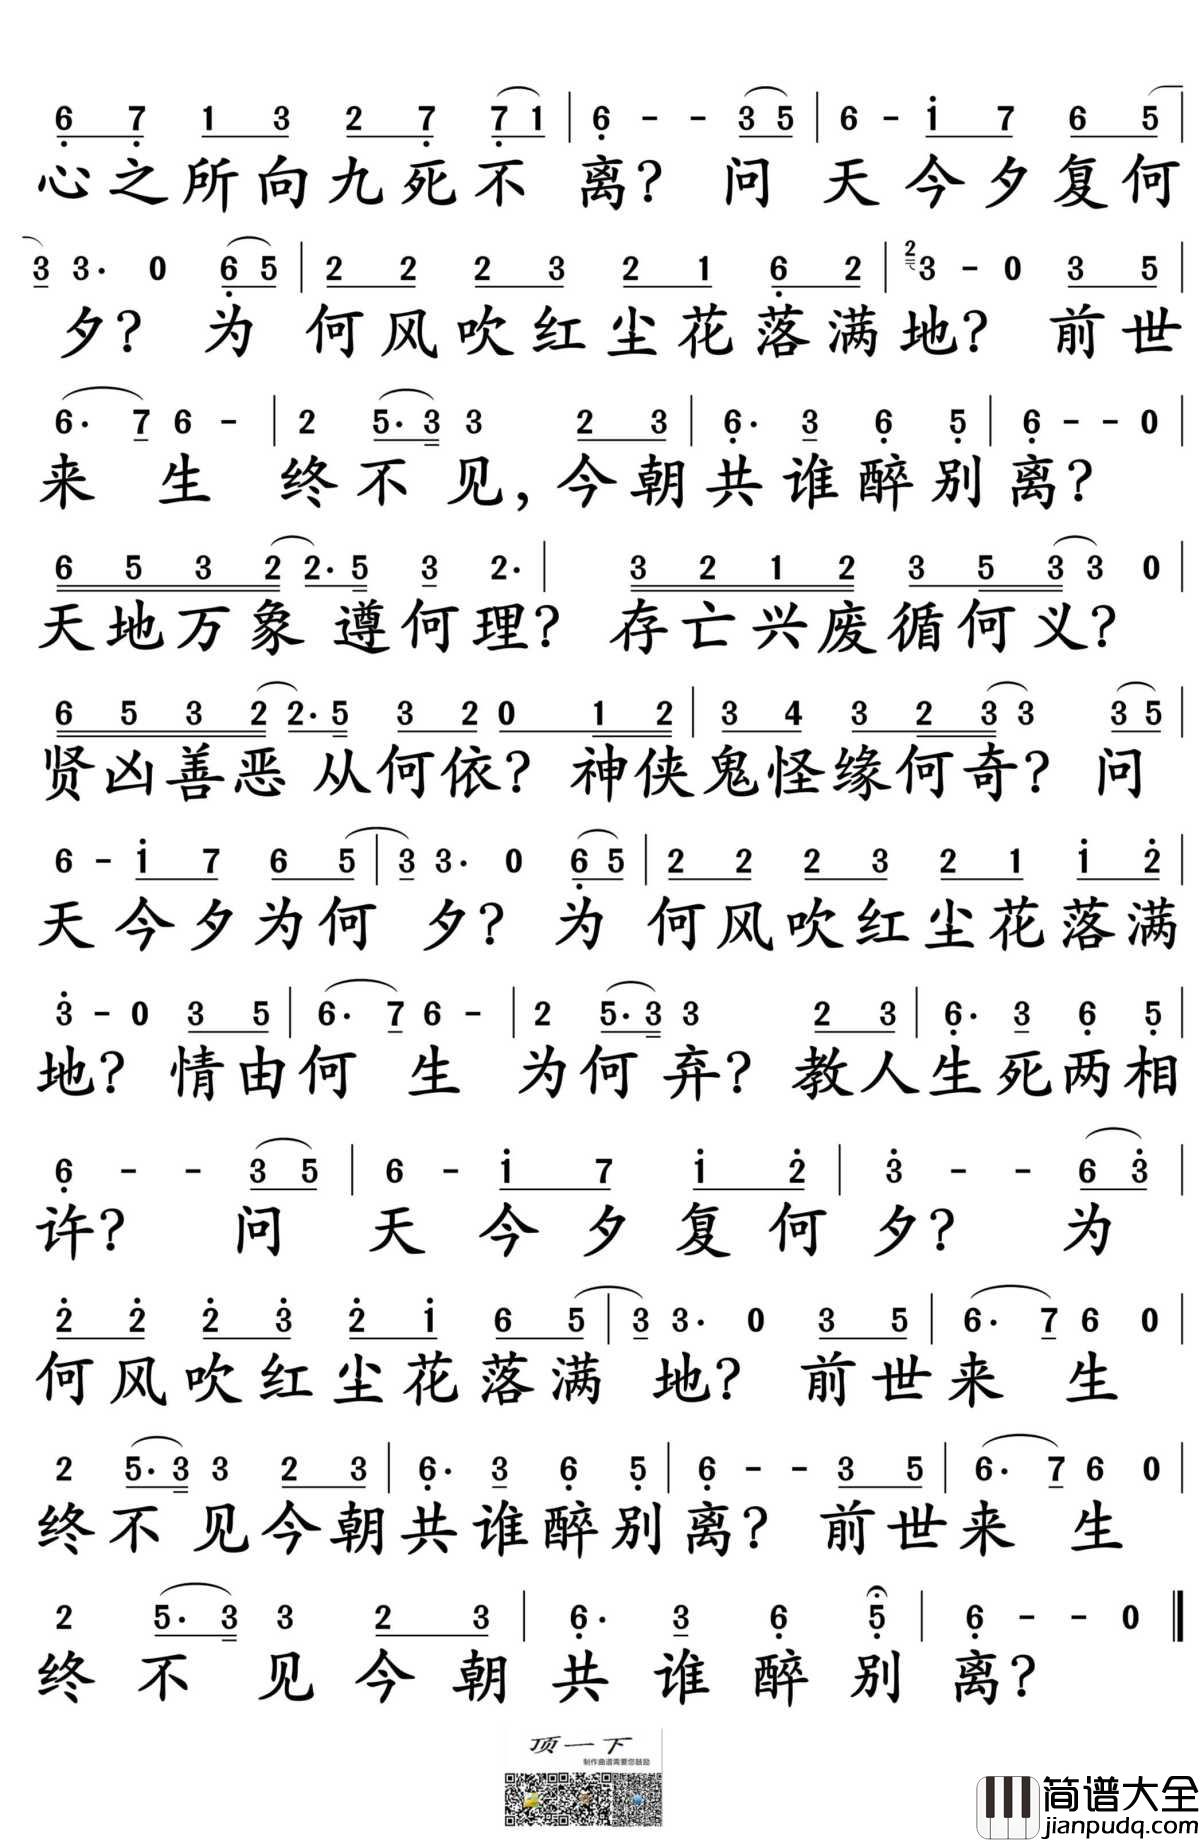 6 7 1 3 2 7 7 1 | 6 - - 3 5 | 6 - 1 7 6 5 |
心之所向九死不离?问天今夕复何
3 3· 0 6 5 | 2 2 2 3 2 1 6 2 | 2 3 - 0 3 5 |
夕?为何风吹红尘花落满地?前世
6· 7 6 - | 2 5·3 3 2 3 | 6· 3 6 5 | 6 - - 0 |
来生终不见,今朝共谁醉别离?
6 5 3 2 2·5 3 2· | 3 2 1 2 3 5 3 3 0 |
天地万象遵何理?存亡兴废循何义?
6 5 3 2 2·5 3 2 0 1 2 | 3 4 3 2 3 3 3 5 |
贤凶善恶从何依?神侠鬼怪缘何奇?问
6 - 1 7 6 5 | 3 3· 0 6 5 | 2 2 2 3 2 1 1 2 |
天今夕为何夕?为何风吹红尘花落满
3 - 0 3 5 | 6· 7 6 - | 2 5·3 3 2 3 | 6· 3 6 5 |
地?情由何生为何弃?教人生死两相
6 - - 3 5 | 6 - 1 7 1 2 | 3 - - 6 3 |
许?问天今夕复何夕?为
2 2 2 3 2 1 6 5 | 3 3· 0 3 5 | 6· 7 6 0 |
何风吹红尘花落满地?前世来生
2 5·3 3 2 3 | 6· 3 6 5 | 6 - - 3 5 | 6· 7 6 0 |
终不见今朝共谁醉别离?前世来生
2 5· 3 3 2 3 | 6· 3 6 5 | 6 - - 0
终不见今朝共谁醉别离?
顶一下
制作曲谱需要您鼓励
简谱大全
jianpudq.com